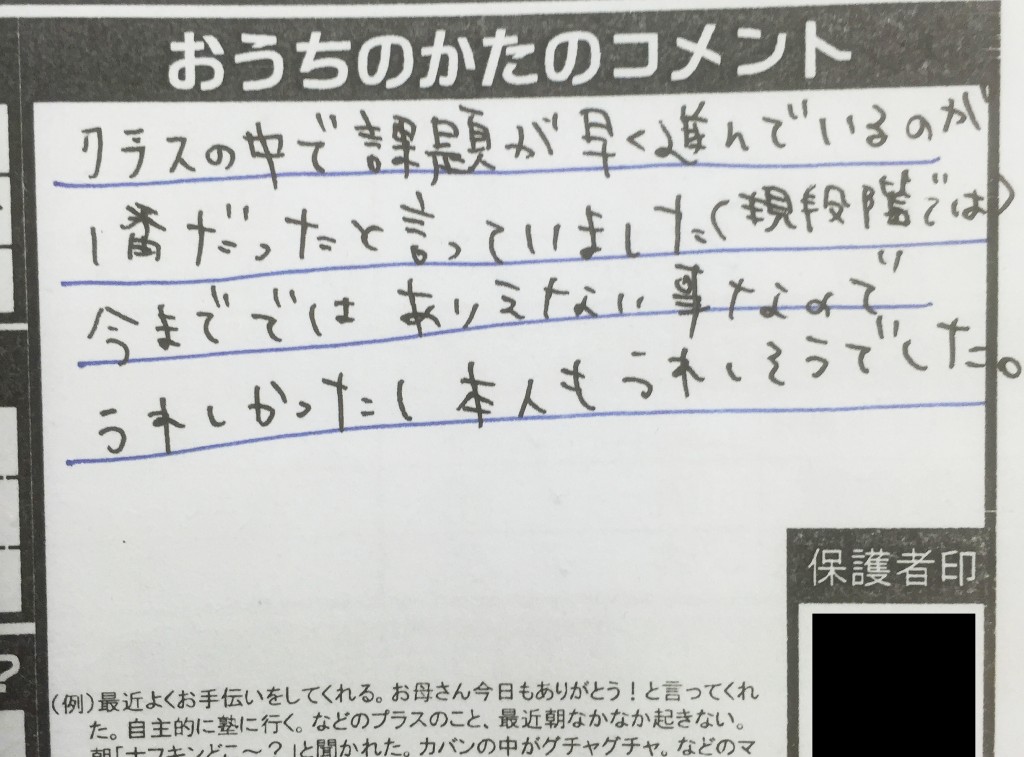 おうちのかたのコメント
クラスの中で課題が早く進んでいるのが
1番だったと言っていました(現段階では)
今まででではありえない事なので
うれしかったし本人もうれしそうでした。
保護者印
(例)最近よくお手伝いをしてくれる。お母さん今日もありがとう!と言ってくれ
た。自主的に塾に行く。などのプラスのこと、最近朝なかなか起きない。
朝「ナフキンどこ〜?」と聞かれた。カバンの中がグチャグチャ。などのマ
?